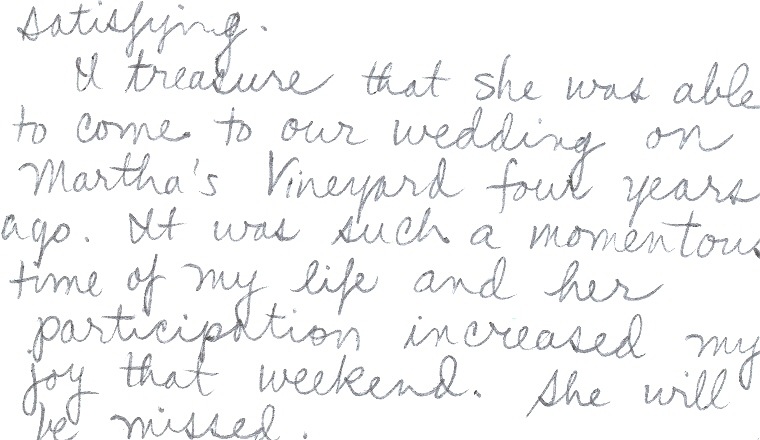 satisfying.
I treasure that she was able
to come to our wedding on
Martha's Vineyard four years
ago. It was such a momentous
time of my life and her
participation increased my
joy that weekend. She will
be missed.